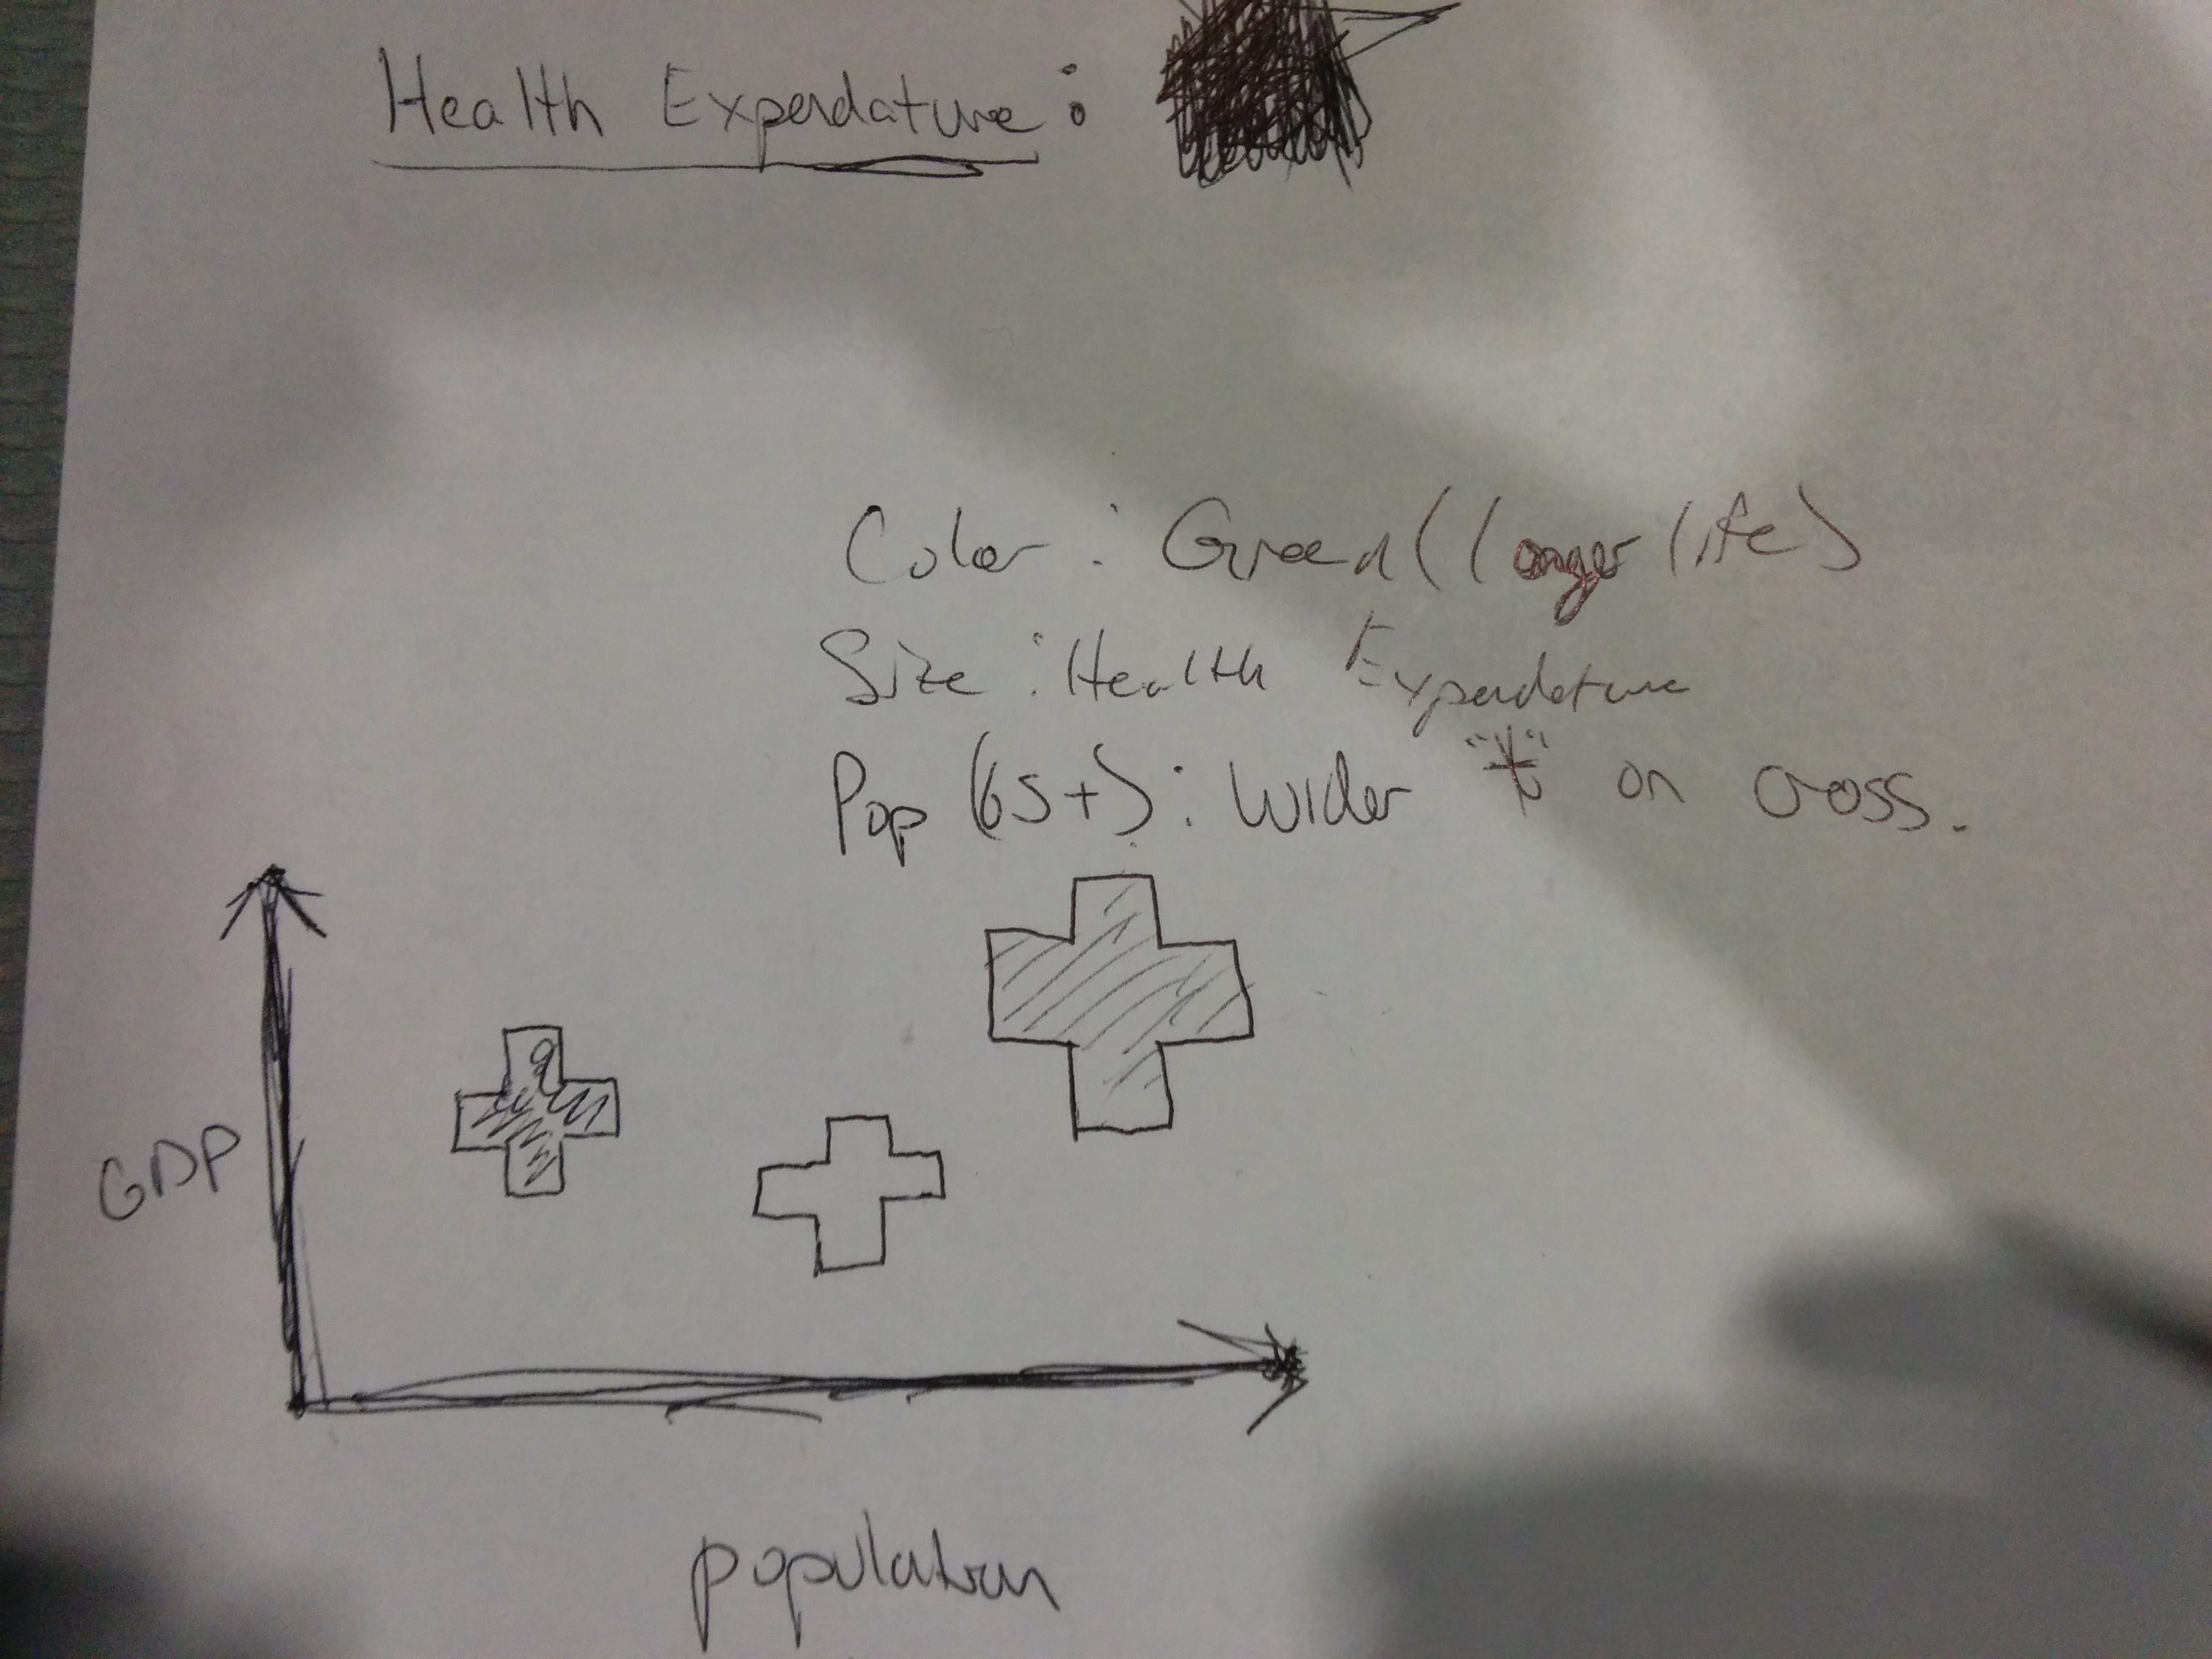 Health Expendature:
Color: Green (longer life)
Size: Health Expendature
Pop (65+): Wider "t" on cross.
GDP
population